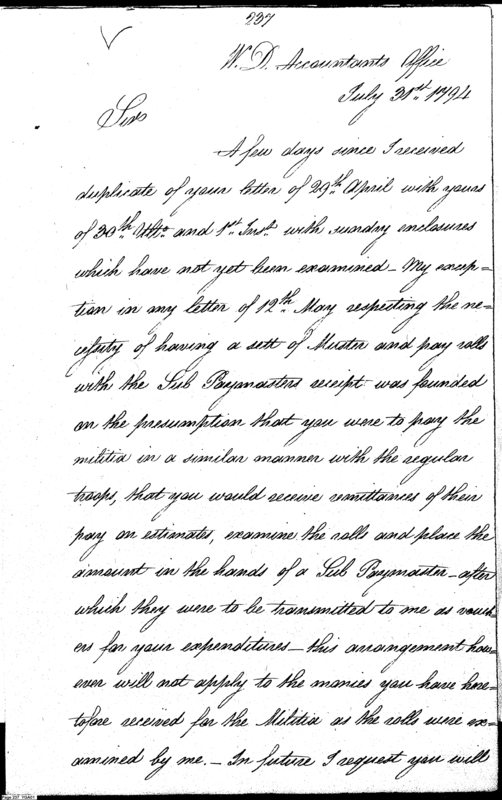 237
W. D. Accountants Office
July 31st 1794
Sir
A few days since I received
duplicate of your letter of 29th April with yours
of 30th Ulto. and 1st Inst. with sundry enclosures
which have not yet been examined – My excep=
tion in my letter of 12th May respecting the ne=
cessity of having a sett of Muster and pay rolls
with the Sub Paymasters receipt was founded
on the presumption that you were to pay the
militia in a similar manner with the regular
troops, that you would receive remittances of their
pay on estimates, examine the rolls and place the
amount in the hands of a Sub Paymaster – after
which they were to be transmitted to me as vouch=
ers for your expenditures – this arrangement how=
ever will not apply to the monies you have here=
tofore received for the Militia as the rolls were ex=
amined by me. – In future I request you will